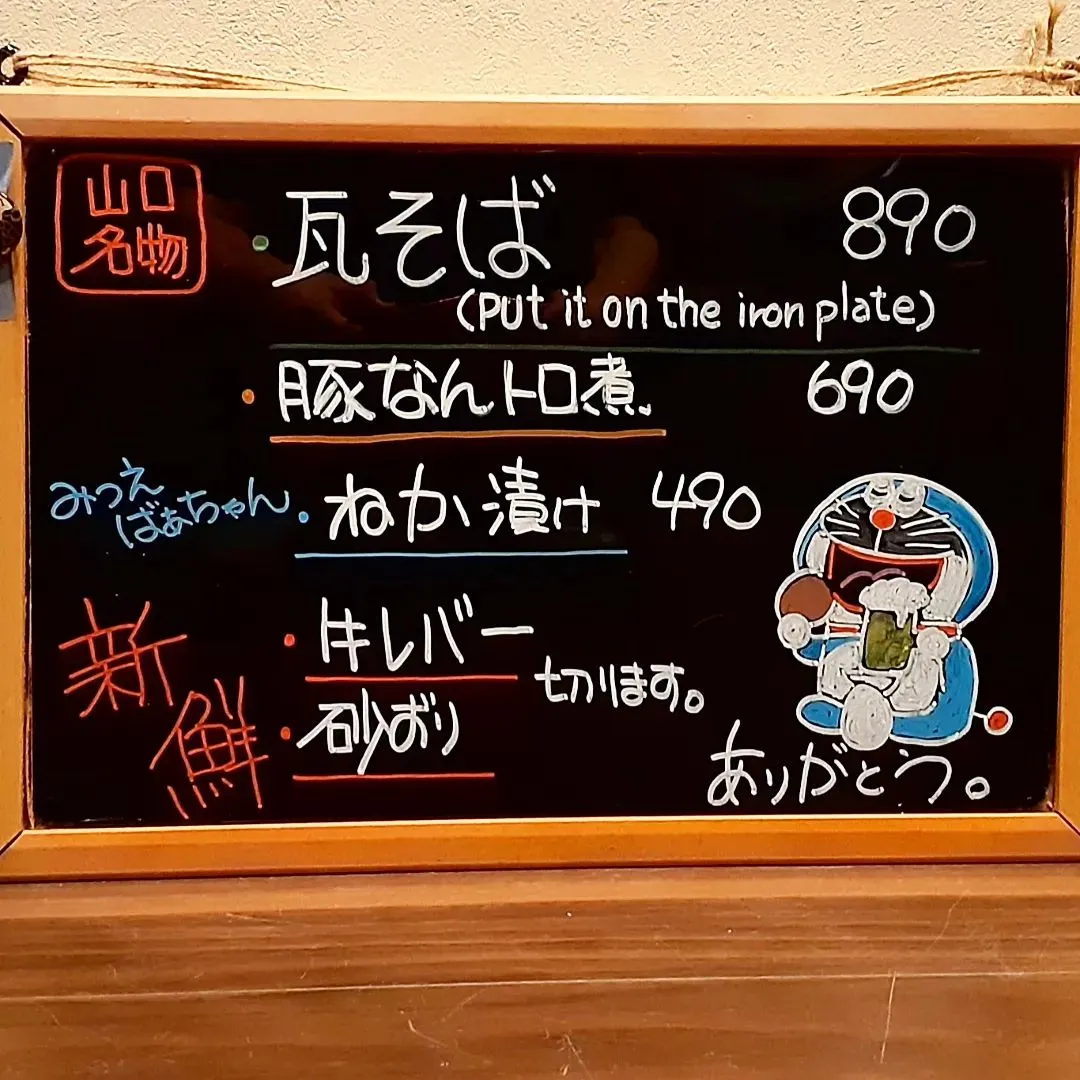 山口
名物
・瓦そば 890
(Put it on the iron plate)
・豚なんトロ煮 690
みつえ
ばぁちゃん
・ねか漬け 490
新鮮
・キレバー
・砂ずり
切ります。
ありがとう。